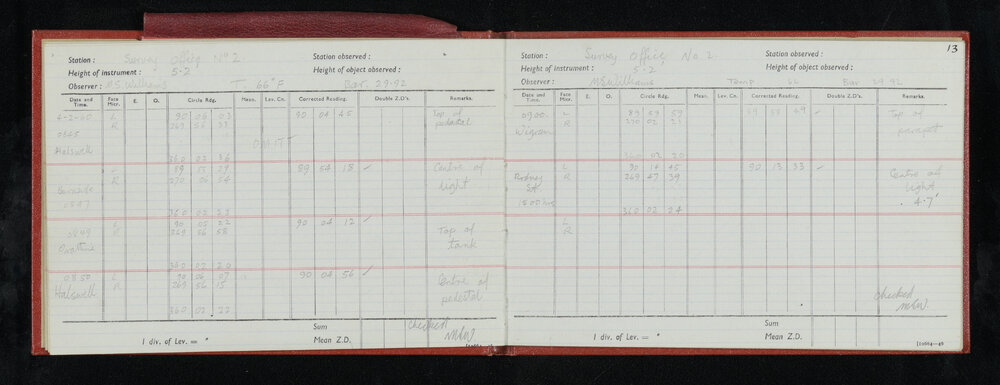 Station : Survey Office No 2 Station observed :
Height of instrument : 5.2 Height of object observed :
Observer : M.S. Williams T 66° F Bar. 29.92
Date and Time. Face Micr. E. O. Circle Rdg. Mean. Lev. Cn. Corrected Reading. Double Z.D's. Remarks.
4-2-60 L 90 06 03 90 04 45 Top of
R 269 56 33 pedestal
0845
Halswell OMIT
360 02 36
L 89 55 29 89 54 18 ✓ Centre of
R 270 06 54 light
0847
360 02 23
L 90 05 22 90 04 12 ✓
0849 R 269 56 58 Top of
tank
360 02 20
0850 L 90 06 07 90 04 56 ✓ Centre of
Halswell R 269 56 15 pedestal
360 02 22
Sum checked
1 div. of Lev. = " Mean Z.D. MSW
13
Station : Survey Office No. 2 Station observed :
Height of instrument : 5.2 Height of object observed :
Observer : M.S. Williams Temp 66 Bar 29.92
Date and Time. Face Micr. E. O. Circle Rdg. Mean. Lev. Cn. Corrected Reading. Double Z.D's. Remarks.
0900 L 89 59 59 Top of
Wigram R 270 02 21 parapet
360 02 20
L 90 14 45 90 13 33 ✓
Rodney R 269 47 39 Centre of
St light
1500 hrs 360 02 24 4.7'
L
R
checked
MSW.
Sum
1 div. of Lev. = " Mean Z.D.